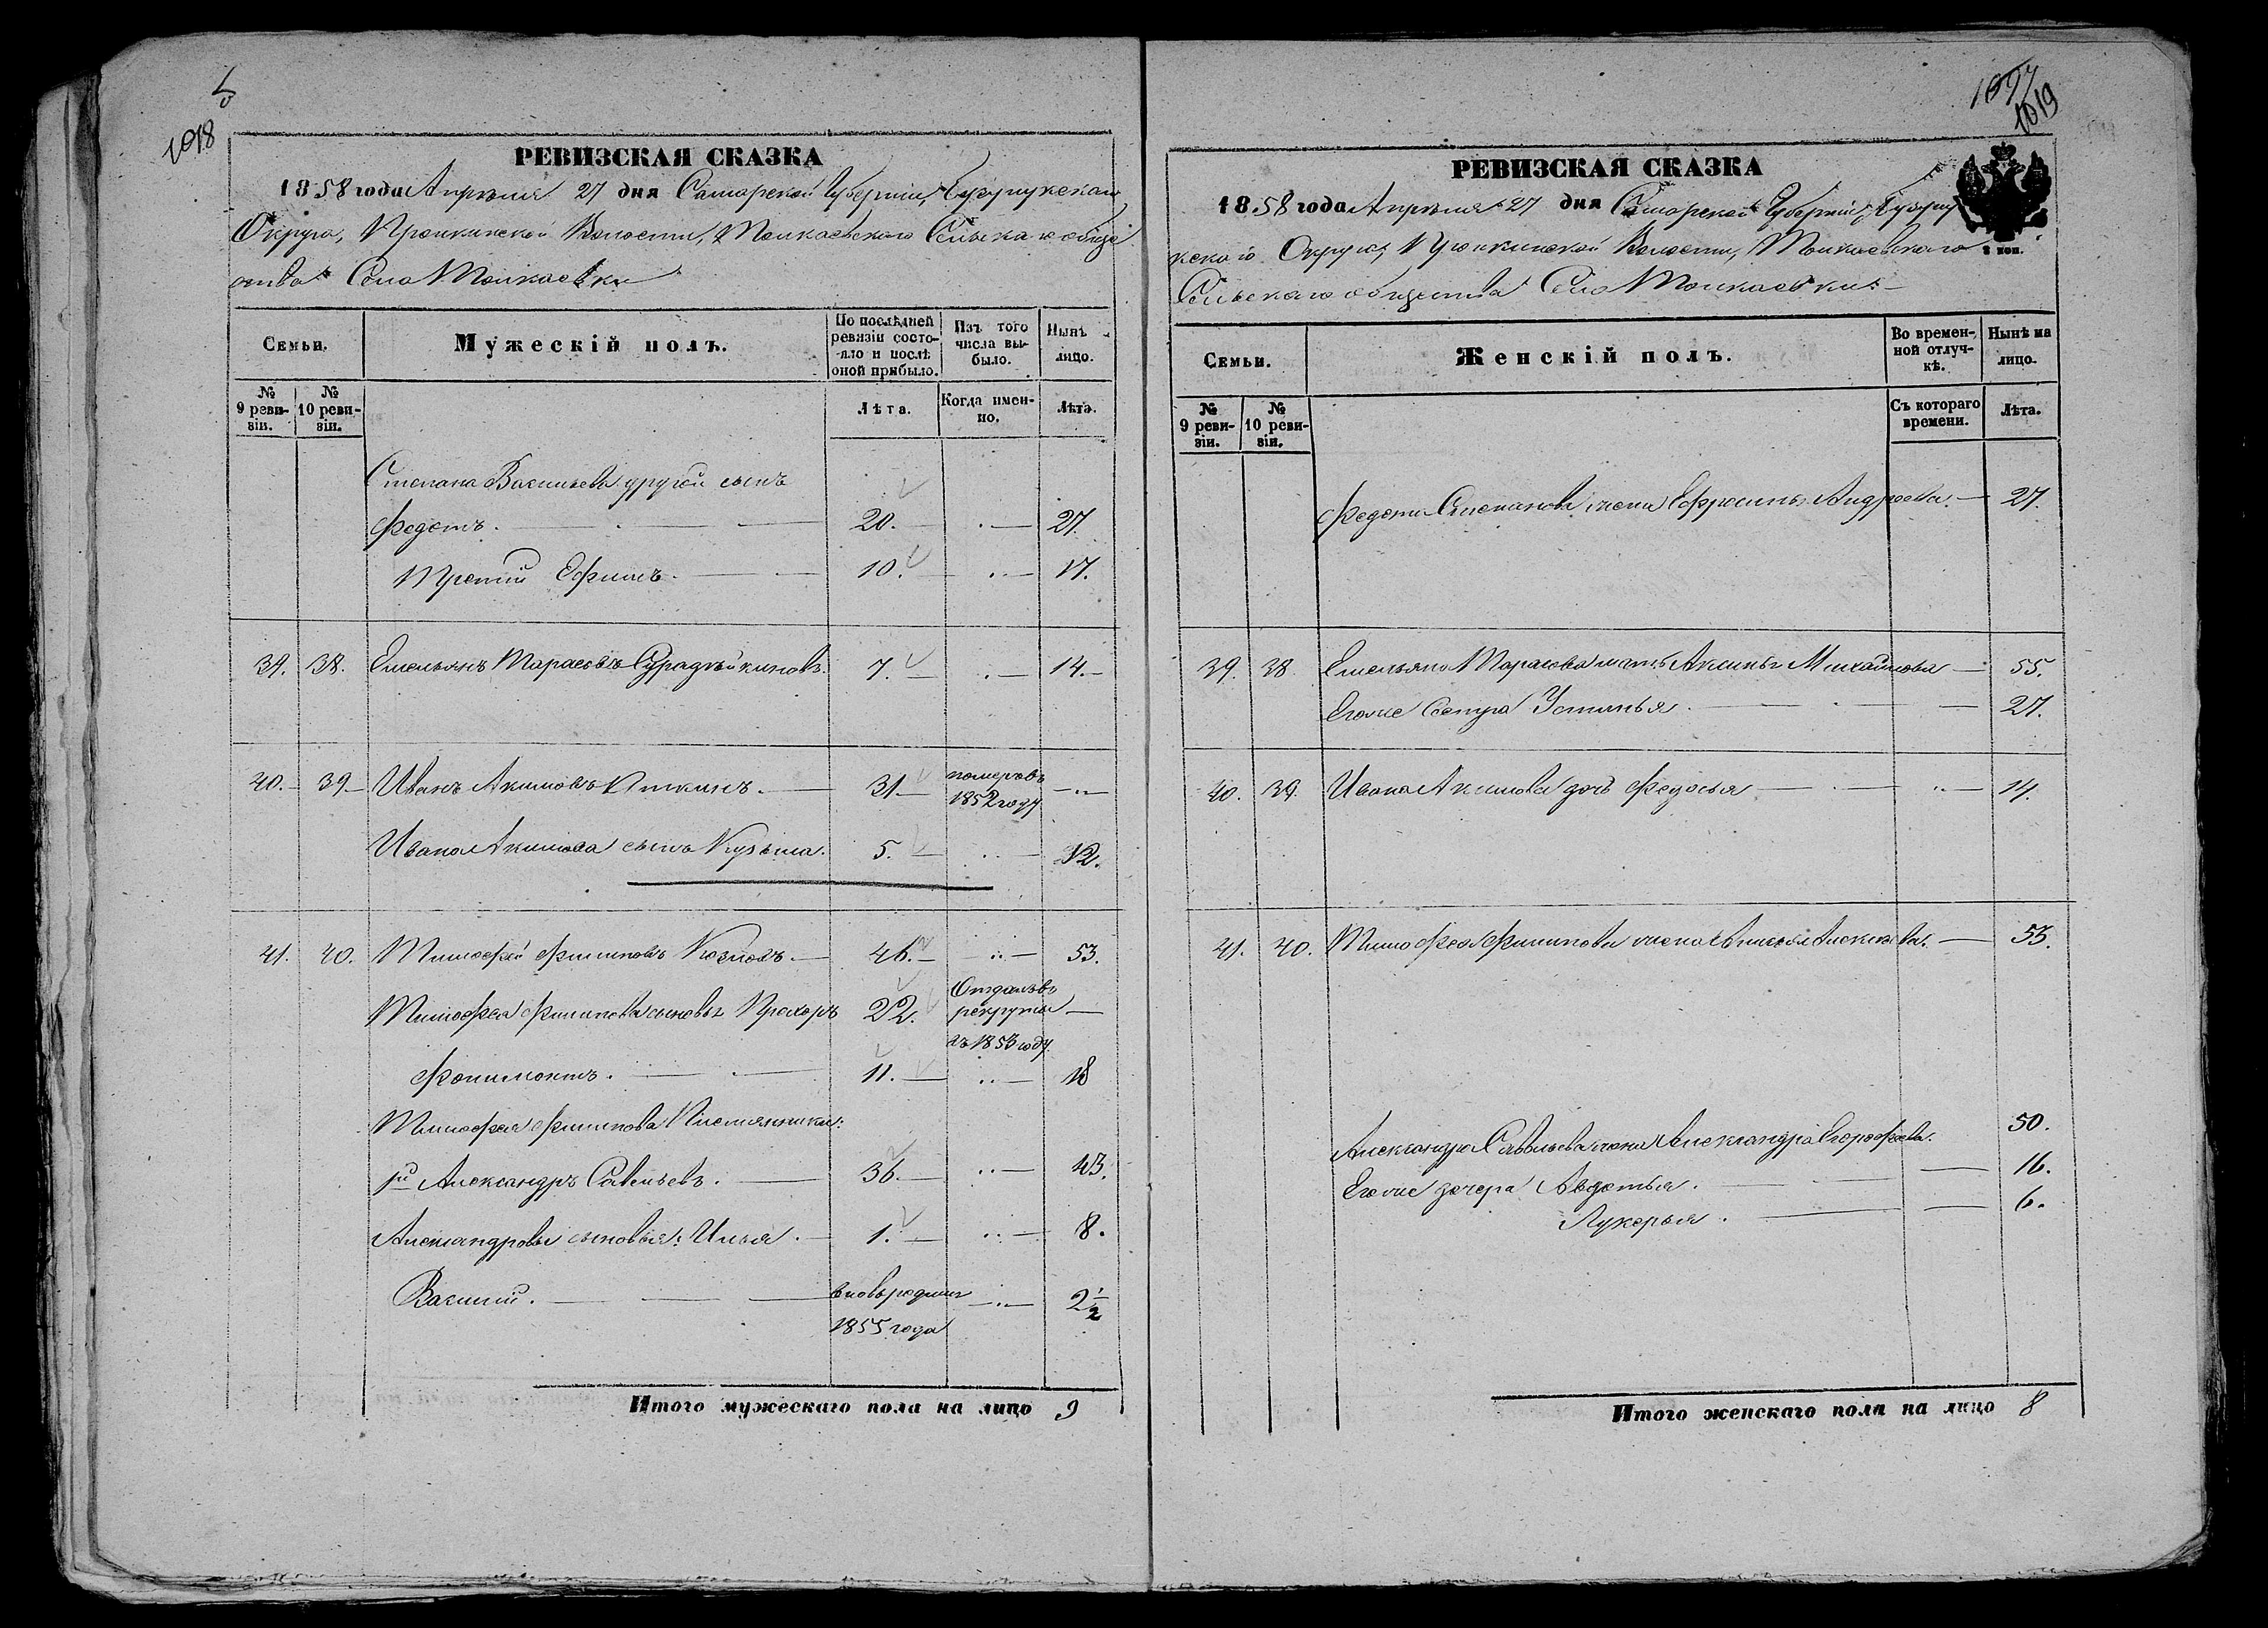 1018
РЕВИЗСКАЯ СКАЗКА
1858 года Апрѣля 27 дня Самарской Губерніи, Бузулукскаго
Округа, Пронкинской Волости, Толкаевскаго Сельскаго обще
ства Села Толкаевки
Семьи.
Мужескій полъ.
По послѣдней ревизіи состояло и послѣ оной прибыло.
Изъ того числа выбыло.
Нынѣ лицо.
№ 9 ревизіи.
№ 10 ревизіи.
Лѣта.
Когда именно.
Лѣта.
Степана Васильева другой сынъ
Федотъ. 20. 27.
Третій Ефимъ. 10. 17.
39. 38. Емельянъ Тарасовъ 7. 14.
40. 39. Иванъ Акимовъ 31. померъ въ 1852 году
Ивана Акимова сынъ Кузьма. 5. 12.
41. 40. Тимофей Филиповъ Козловъ. 46. 53.
Тимофея Филипова сыновья Прохоръ 22. Отданъ въ рекруты въ 1853 году
Филимонтъ. 11. 18
Тимофея Филипова Племянники:
1й Александръ Савельевъ. 36. 43.
Александровы сыновья: Илья. 1. 8.
Василий. вновь родил. 1855 года 2 1/2
Итого мужескаго пола на лицо 9
1019
РЕВИЗСКАЯ СКАЗКА
1858 года Апрѣля 27 дня Самарской Губерніи, Бузулу
2 коп.
кскаго Округа, Пронкинской Волости, Толкаевскаго
Сельскаго общества Села Толкаевки
Семьи.
Женскій полъ.
Во временной отлучкѣ.
Нынѣ на лицо.
№ 9 ревизіи.
№ 10 ревизіи.
Съ котораго времени.
Лѣта.
Федота Степанова жена Ефросинья Андреева. 27.
39. 38. Емельяна Тарасова мать Акулина Михайлова 55.
Его же Сестра Устинья 27.
40. 39. Ивана Акимова дочь Федосья 14.
41. 40. Тимофея Филипова жена Алексѣева. 53.
Александра Савельева жена Александра Ерофеева. 50.
Его же дочери Авдотья. 16.
Лукерья. 6.
Итого женскаго пола на лицо 8